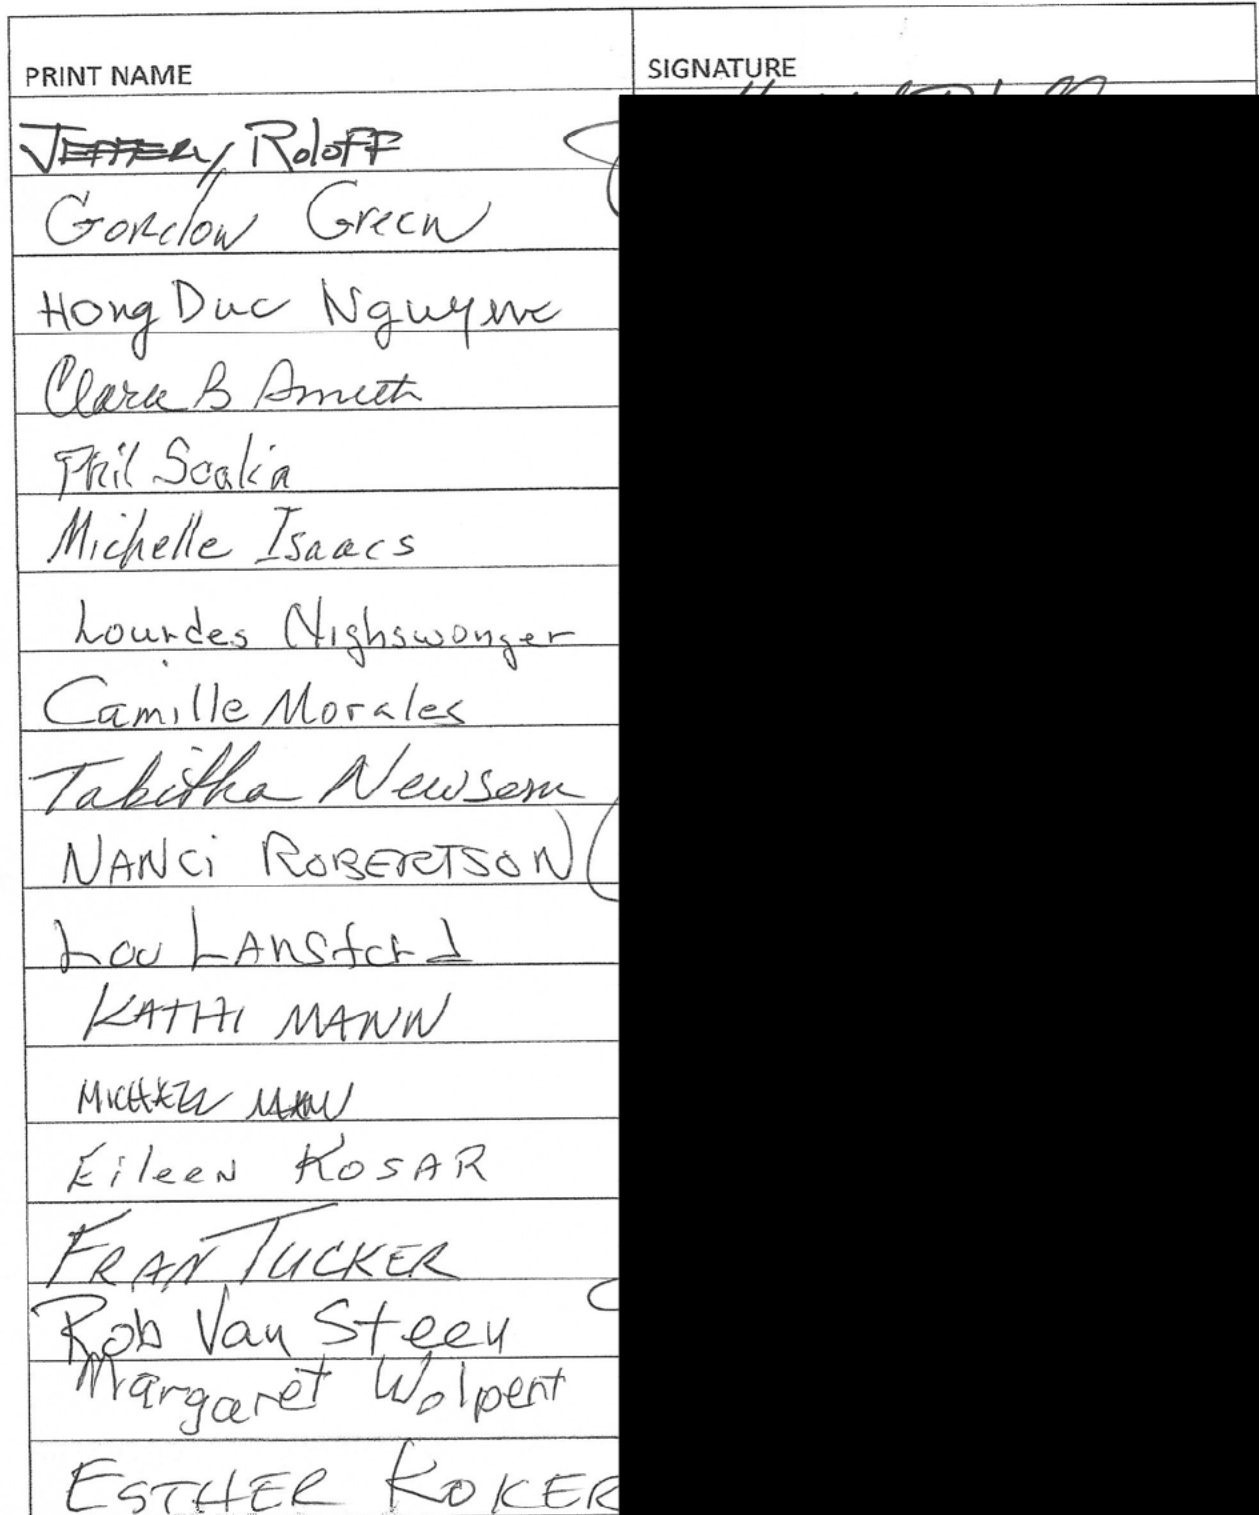 PRINT NAME SIGNATURE
JEFFERY ROLOFF
Gordon Green
Hong Duc Nguyen
Clara B
Phil Scalia
Michelle Isaacs
Lourdes Nighswonger
Camille Morales
Tabitha Newsom
NANCi ROBERTSON
Lou LANSford
KATHI MANN
MICHAEL MANN
EileeN KOSAR
FRAN TUCKER
Rob Van Steen
Margaret Wolpert
ESTHER KOKER